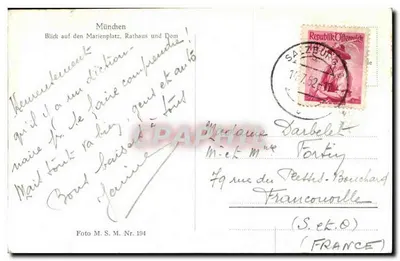 München
Blick auf den Marienplatz, Rathaus und Dom
Heureusement
qu'il y a un diction-
naire pr se faire comprendre!
Mais tout va bien, gens et auto
Bons baisers à tous
Janine
Foto M. S. M. Nr. 104
Republik Österreich
SALZBURG
Madame Darbelet
M. et Mme Fortin
79 rue du Plessis-Bouchard
Franconville
(S. et O)
(FRANCE)
CARTE